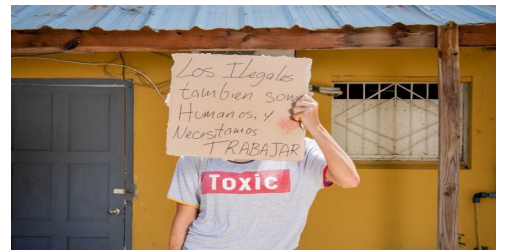 Los Ilegales
tambien son
Humanos, y
Necesitamos
TRABAJAR
Toxic